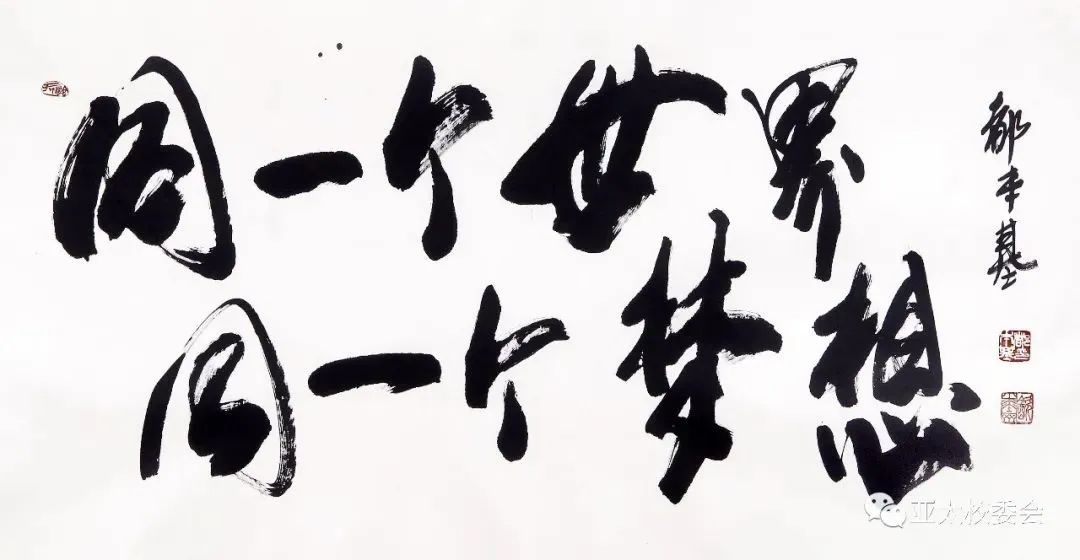 同一个世界
同一个梦想
都本基
亚太校委会